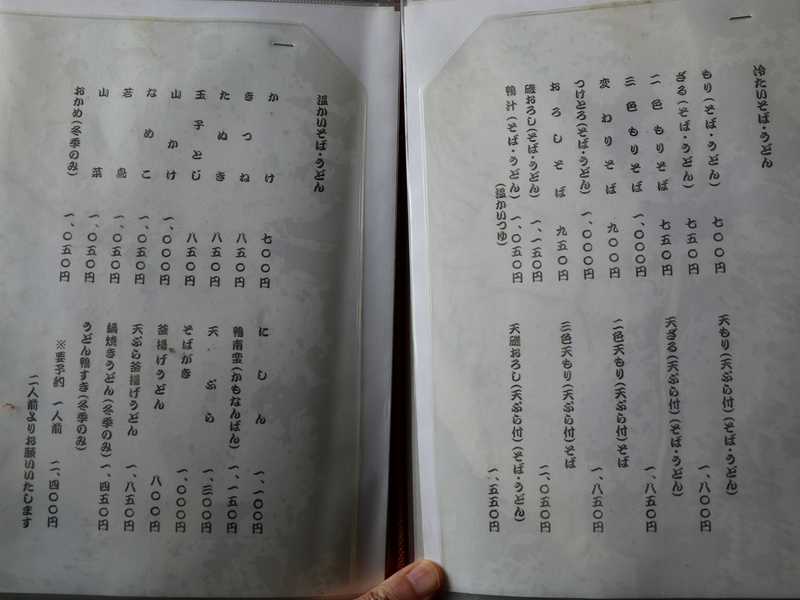 冷たいそば・うどん
もり(そば・うどん) 七〇〇円
ざる(そば・うどん) 七五〇円
二色もりそば 七五〇円
三色もりそば 一、〇〇〇円
変わりそば 九〇〇円
つけとろ(そば・うどん) 一、〇〇〇円
おろしそば 九五〇円
磯おろし(そば・うどん) 一、一五〇円
鴨汁(そば・うどん) 一、〇五〇円
(温かいつゆ)
天もり(天ぷら付)(そば・うどん)
一、八〇〇円
天ざる(天ぷら付)(そば・うどん)
一、八五〇円
二色天もり(天ぷら付)そば
一、八五〇円
三色天もり(天ぷら付)そば
天磯おろし(天ぷら付)(そば・うどん)
温かいそば・うどん
かけ 七〇〇円
きつね 八五〇円
たぬき 八五〇円
玉子とじ 八五〇円
山かけ 一、〇〇〇円
なめこ 一、〇五〇円
若鳥 一、〇五〇円
山菜 一、〇五〇円
おかめ(冬季のみ) 一、〇五〇円
にしん 一、一〇〇円
鴨南蛮(かもなんばん) 一、一五〇円
天ぷら 一、三〇〇円
そばがき 一、〇〇〇円
釜揚げうどん 八〇〇円
天ぷら釜揚げうどん 一、八五〇円
鍋焼きうどん(冬季のみ) 一、四五〇円
うどん鴨すき(冬季のみ)
※要予約 一人前 二、四〇〇円
二人前よりお願いいたします